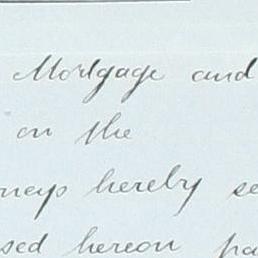 Mortgage and
on the
neys hereby se
sed hereon pa